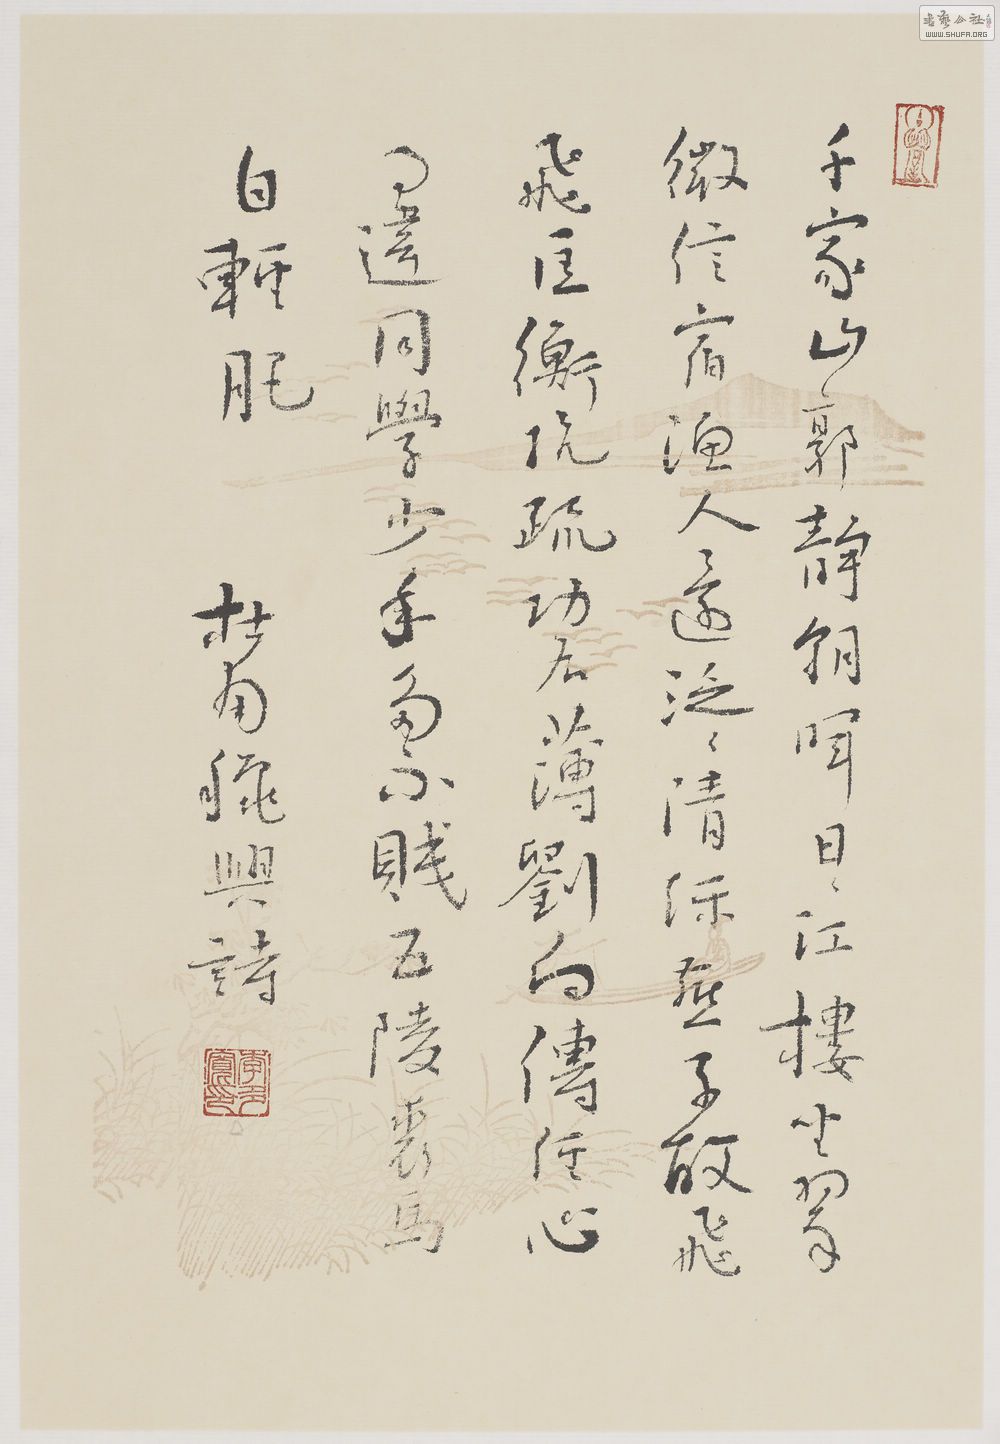 千家山郭静朝暉日〻江樓坐翠
微信宿漁人還泛〻清秋燕子故飛
飛匡衡抗疏功名薄劉向傳經心
事違同學少年多不賤五陵裘馬
自輕肥
杜甫秋興詩
WWW.SHUFA.ORG